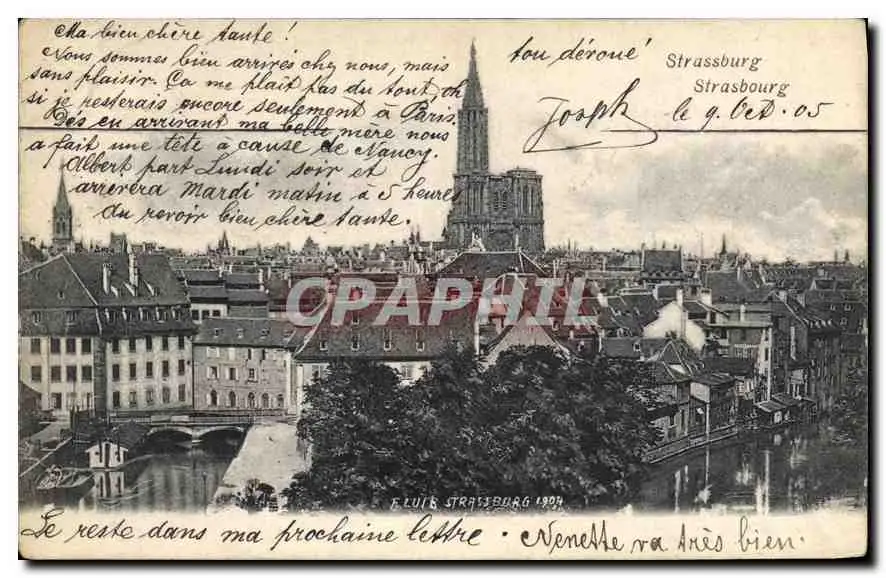 Ma bien chère tante!
Nous sommes bien arrivés chez nous, mais
sans plaisir. Ça me plait pas du tout, ch
si je resterais encore seulement à Paris.
Dés en arrivant ma belle mère nous
a fait une tête à cause de Nancy.
Albert part Lundi soir et
arrivera Mardi matin à 5 heures
du revoir bien chère tante.
tou déroué
Joseph
Strassburg
Strasbourg
le 9. Oct. 05
CAPHI
E LUIB STRASSBURG 1904
Le reste dans ma prochaine lettre. Nenette va très bien.